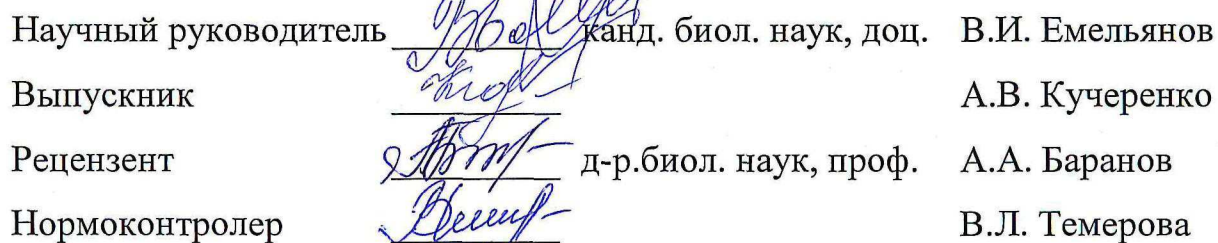 Научный руководитель канд. биол. наук, доц. В.И. Емельянов
Выпускник А.В. Кучеренко
Рецензент д-р.биол. наук, проф. А.А. Баранов
Нормоконтролер В.Л. Темерова